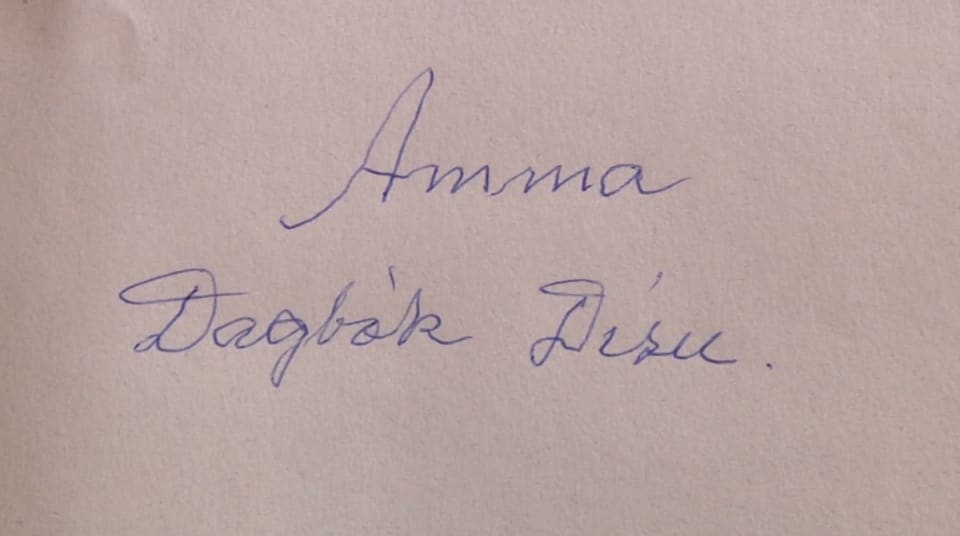 Amma
Dagbók Dísu.